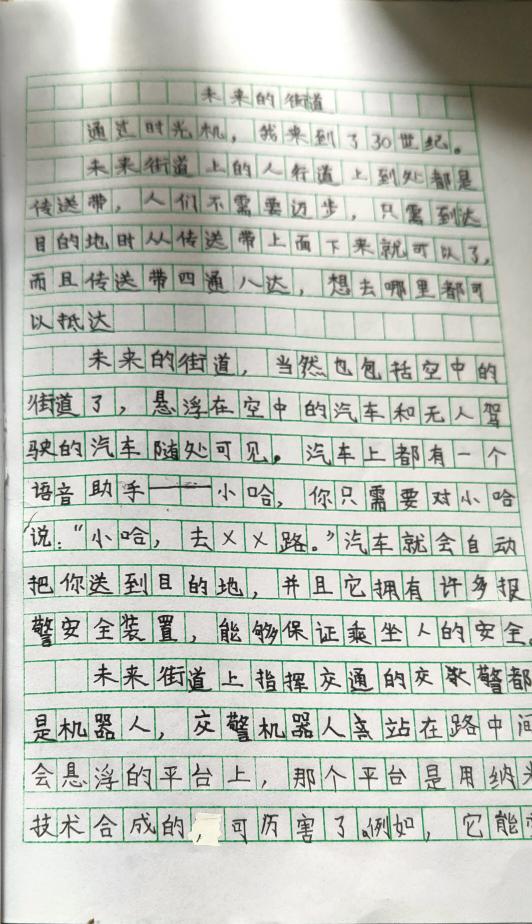 未来的街道
通过时光机，我来到了30世纪。
未来街道上的人行道上到处都是
传送带，人们不需要迈步，只需到达
目的地时从传送带上面下来就可以了，
而且传送带四通八达，想去哪里都可
以抵达
未来的街道，当然也包括空中的
街道了，悬浮在空中的汽车和无人驾
驶的汽车随处可见。汽车上都有一个
语音助手——小哈，你只需要对小哈
说："小哈，去××路。"汽车就会自动
把你送到目的地，并且它拥有许多报
警安全装置，能够保证乘坐人的安全。
未来街道上指挥交通的交警都
是机器人，交警机器人站在路中间
会悬浮的平台上，那个平台是用纳米
技术合成的，可厉害了。例如，它能